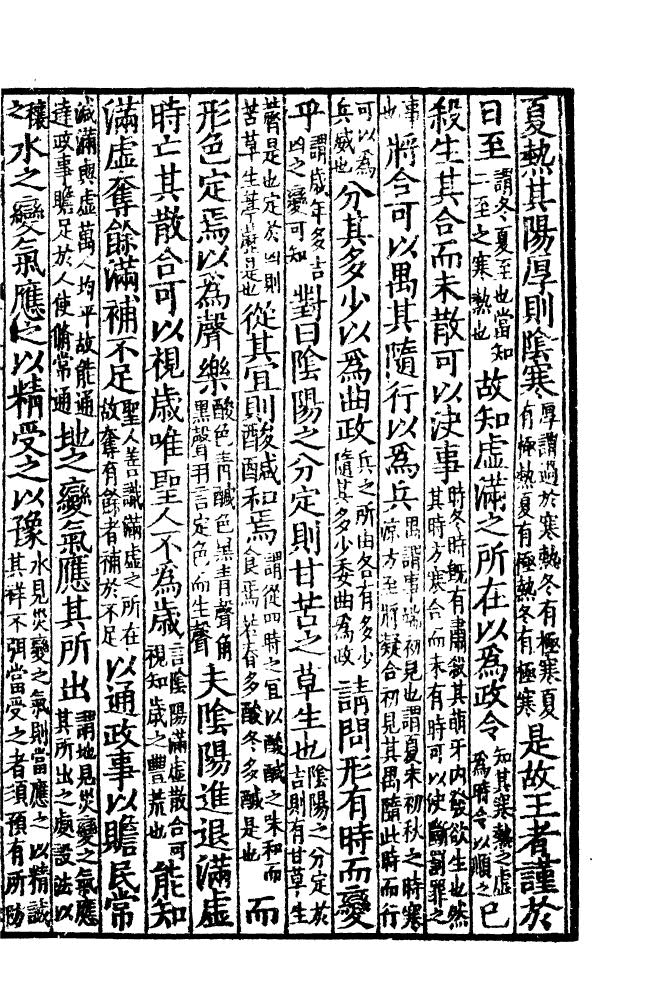 夏熱其陽厚則隂寒厚謂過於寒熱冬有極寒夏有極熱夏有極熱冬有極寒是故王者謹於
日至謂冬夏至也當知二至之寒熱也故知虛滿之所在以為政令知其寒熱之虛為時令以順之已
殺生其合而未散可以決事時冬時旣有肅殺其萌牙内發欲生也然其時方寒合而未有時可以決斷罰罪之
事也將合可以禺其隨行以為兵禺謂事端初見也謂夏末初秋之時寒涼方至將凝合初見其禺隨此時而行
可以為兵威也分其多少以為曲政兵之所由各有多少隨其多少委曲為政請問形有時而變
乎謂歲年多吉凶之變可知對曰隂陽之分定則甘苦之草生也隂陽之分定於吉則有甘草生
薺是也定於凶則苦草生葶藶是也從其宜則酸醎和焉謂從四時之宜以酸醎之味和而食焉若春多酸冬多醎是也而
形色定焉以為聲樂酸色青醎色黒青聲角黒聲羽言定色而生聲夫隂陽進退滿虛
時亡其散合可以視歲唯聖人不為歲言隂陽滿虛散合可視知歲之豐荒也能知
滿虛奪餘滿補不足聖人善識滿虛之所在故奪有餘者補於不足以通政事以贍民常
減滿與虛萬人均平故能通達政事贍足於人使贍常通地之變氣應其所出謂地見災變之氣應其所出之處設法以
穰之水之變氣應之以精受之以豫水見災變之氣則當應之以精誠其祥不弭當受之者須預有所防